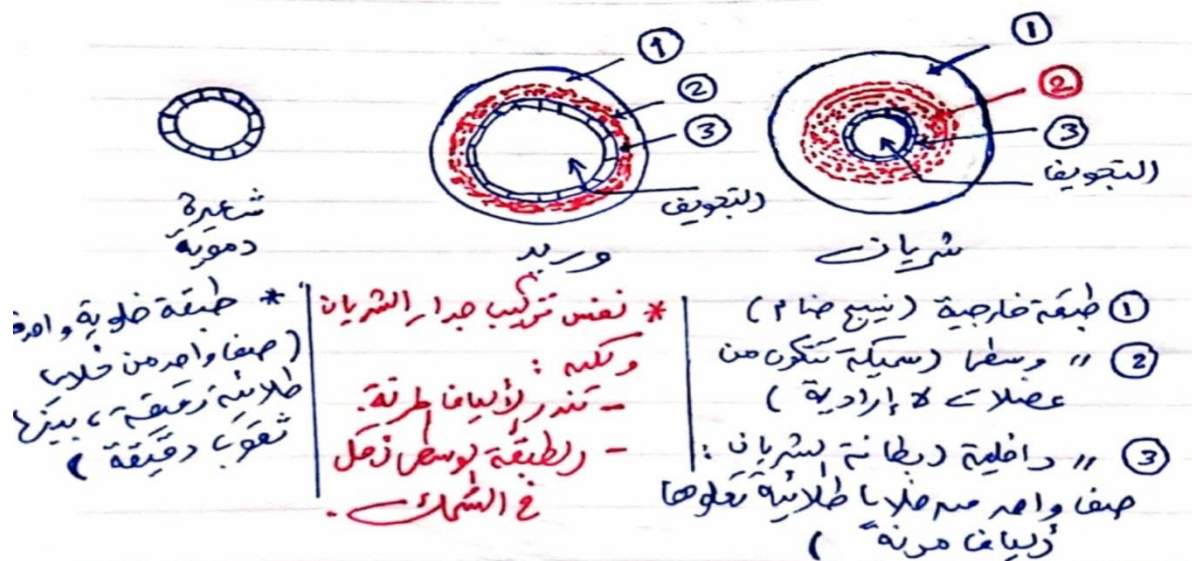 ①
②
③
التجويف
شريان
①
②
③
التجويف
وريد
شعيرة
دموية
① طبقة خارجية (نسيج ضام)
② 〃 وسطى (سميكة تتكون من
عضلات لا إرادية)
③ 〃 داخلية (بطانة الشريان:
صف واحد من خلايا طلائية تعلوها
ألياف مرنة)
* نفس تركيب جدار الشريان
ولكنه:
- تندر الألياف المرنة.
- الطبقة الوسطى أقل
في السُمك.
* طبقة خلوية واحدة
(صف واحد من خلايا
طلائية رقيقة، بينها
ثقوب دقيقة)